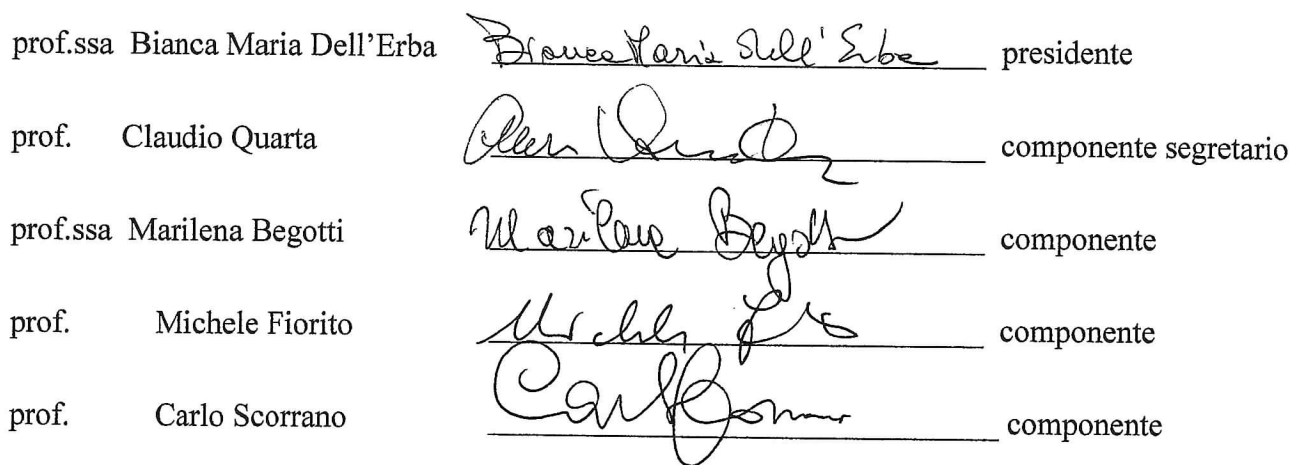 prof.ssa Bianca Maria Dell'Erba Bianca Maria Dell'Erba presidente
prof. Claudio Quarta componente segretario
prof.ssa Marilena Begotti Marilena Begotti componente
prof. Michele Fiorito componente
prof. Carlo Scorrano componente